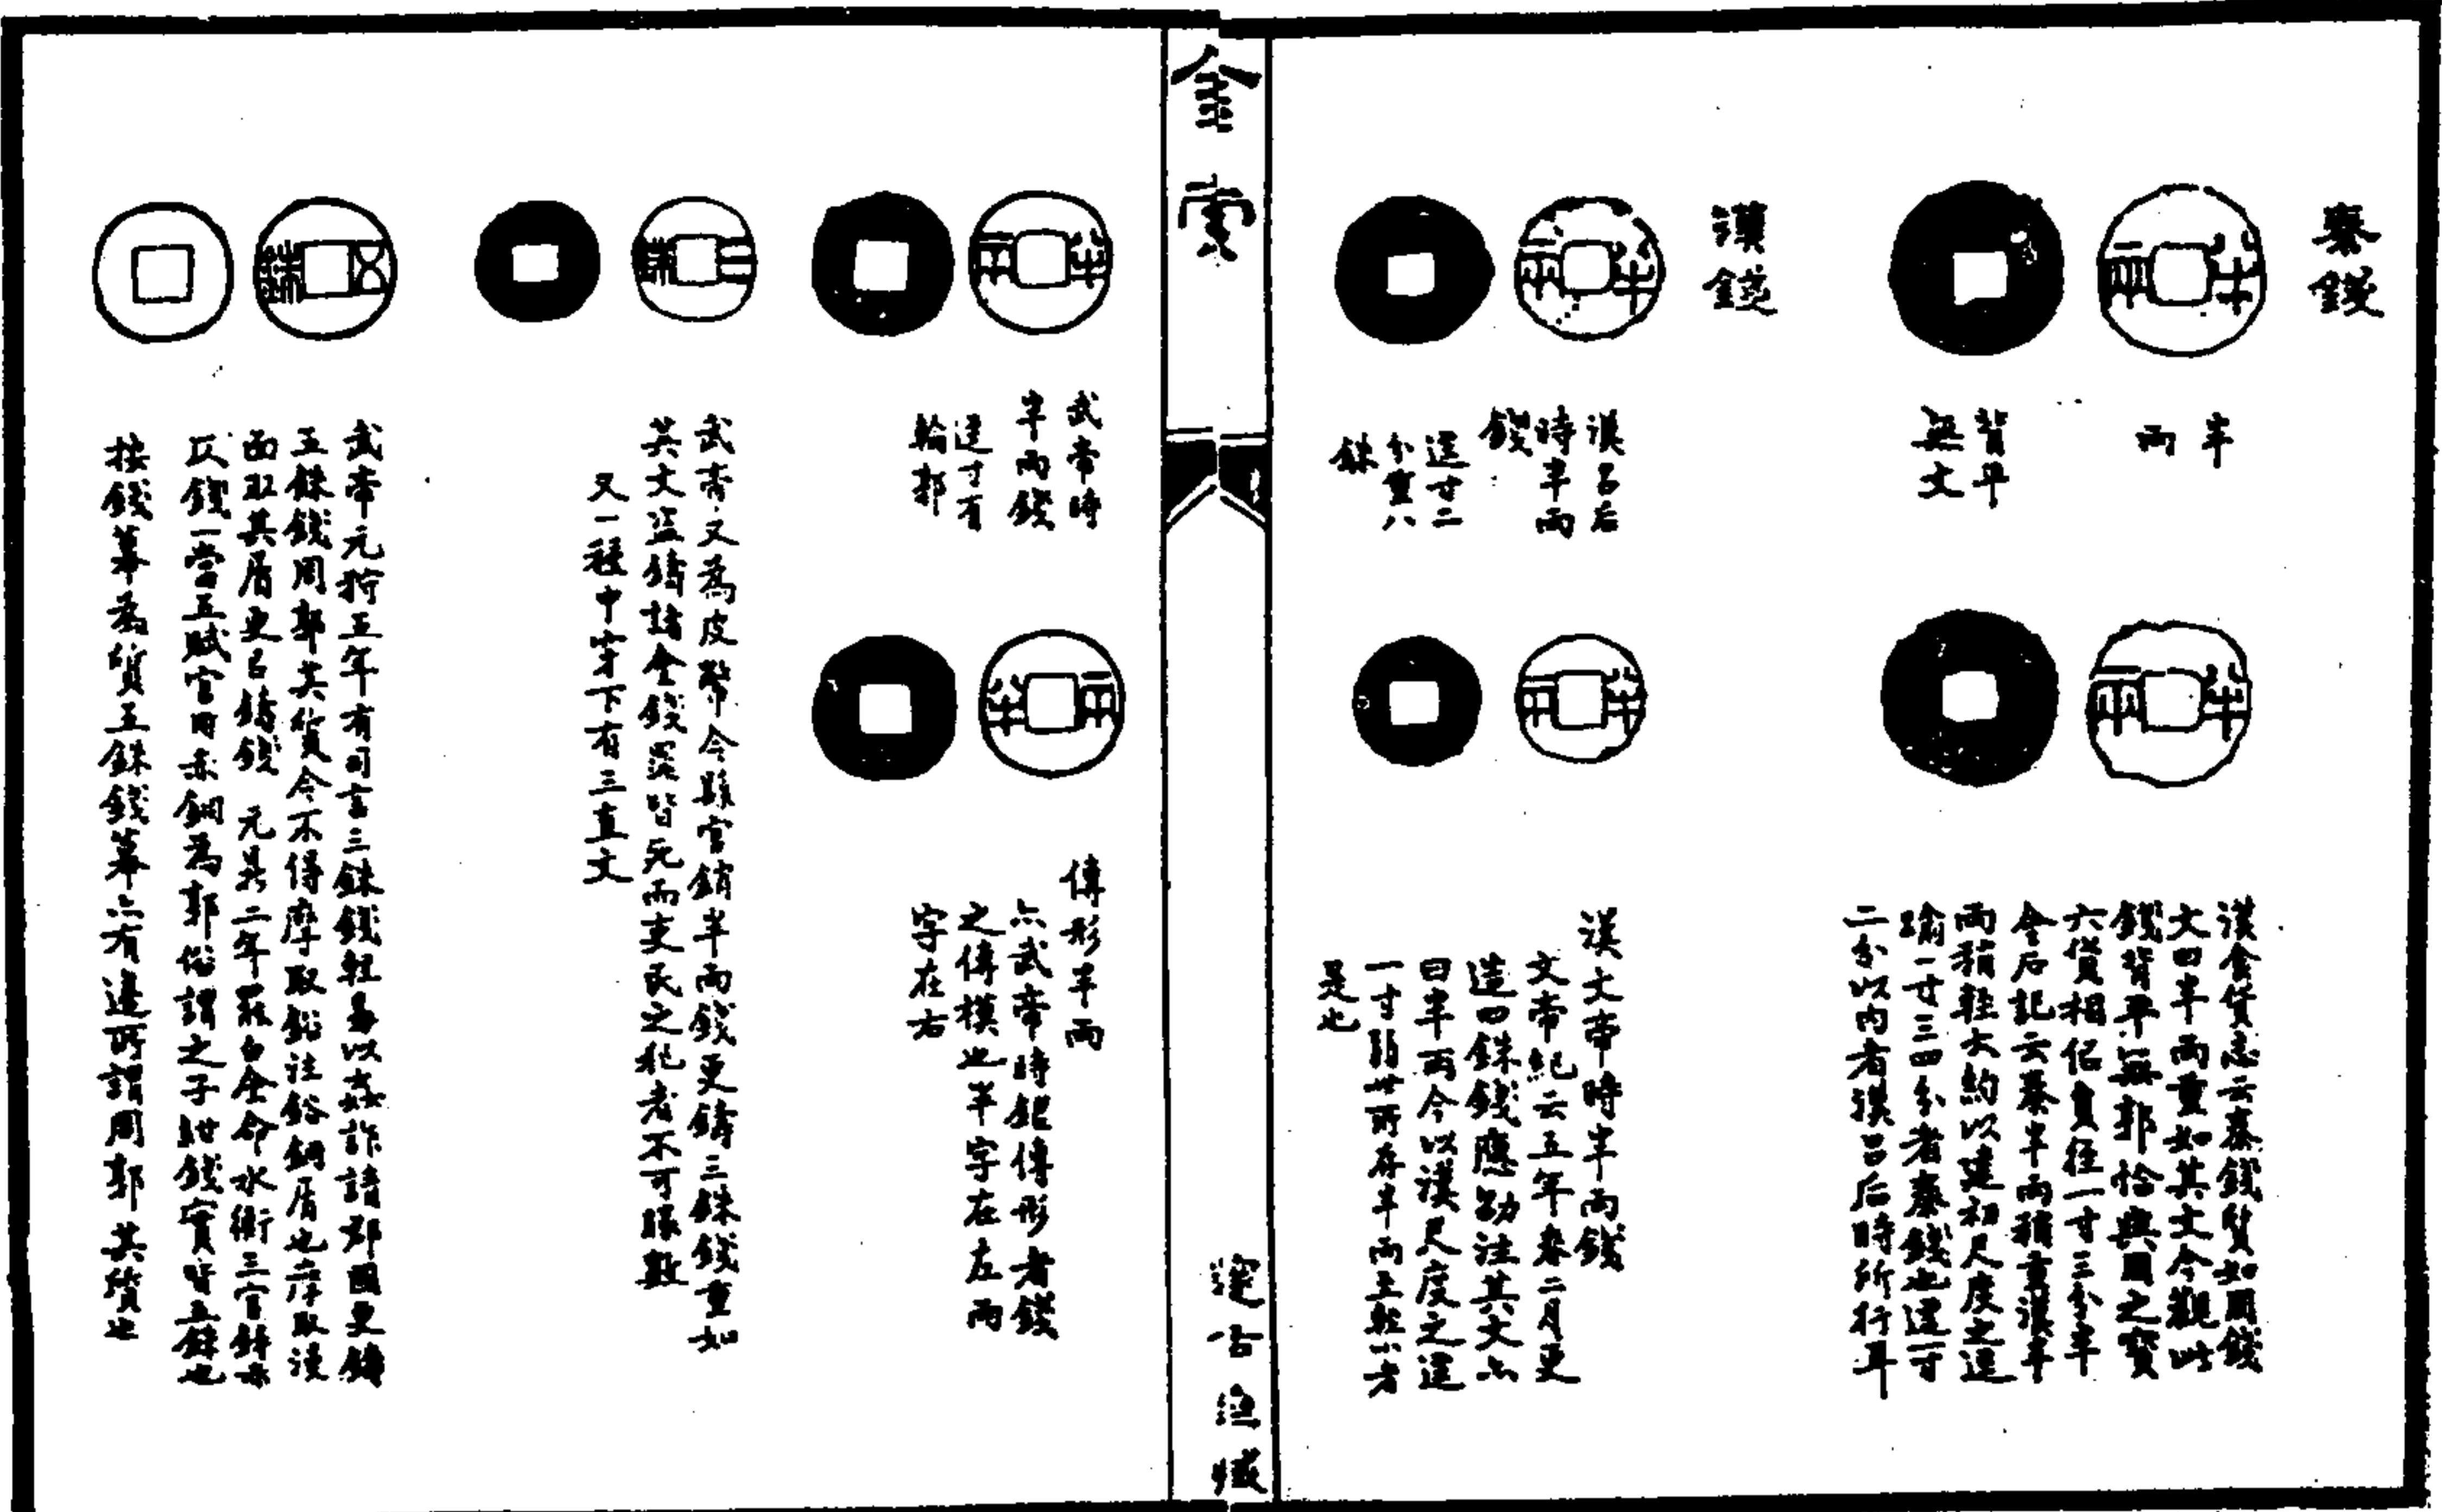 秦錢
半
兩
背平
無文
漢食貨志云秦錢質如周錢
文曰半兩重如其文今觀此
錢背平無郭恰與周之寶
六貨相侣負徑一寸三分半
今后記云秦半兩稍重漢半
兩稍輕大約以建初尺度之逕
一寸三四分者秦錢也逕寸
二分以內者漢呂后時所行耳
漢錢
漢呂后
時半兩
錢
逕寸二
分重八
銖
漢文帝時半兩錢
文帝紀云五年春二月更
造四銖錢應劭注其文亦
曰半兩今以漢尺度之逕
一寸弱世所存半兩至輕小者
是也
金
武帝時
半兩錢
逕寸有
輪郭
傳形半兩
亦武帝時鑄傳形者錢
之傳模也半字在左兩
字在右
武帝又為皮幣令縣官銷半兩錢更鑄三銖錢重如
其文盜鑄諸金錢罪皆死而吏民之犯者不可勝數
又一種中穿下有三直文
武帝元狩五年有司言三銖錢輕易以姦詐請郡國更鑄
五銖錢周郭其質令不得摩取鉛注鎔銅屑也摩取漫
面取其屑更以鑄錢 元鼎二年罷白金命水衡三官鑄赤
仄錢一當五賦官用赤銅為郭俗謂之子紺錢實皆五銖也
按錢幕為質五銖錢幕亦有邊所謂周郭其質也